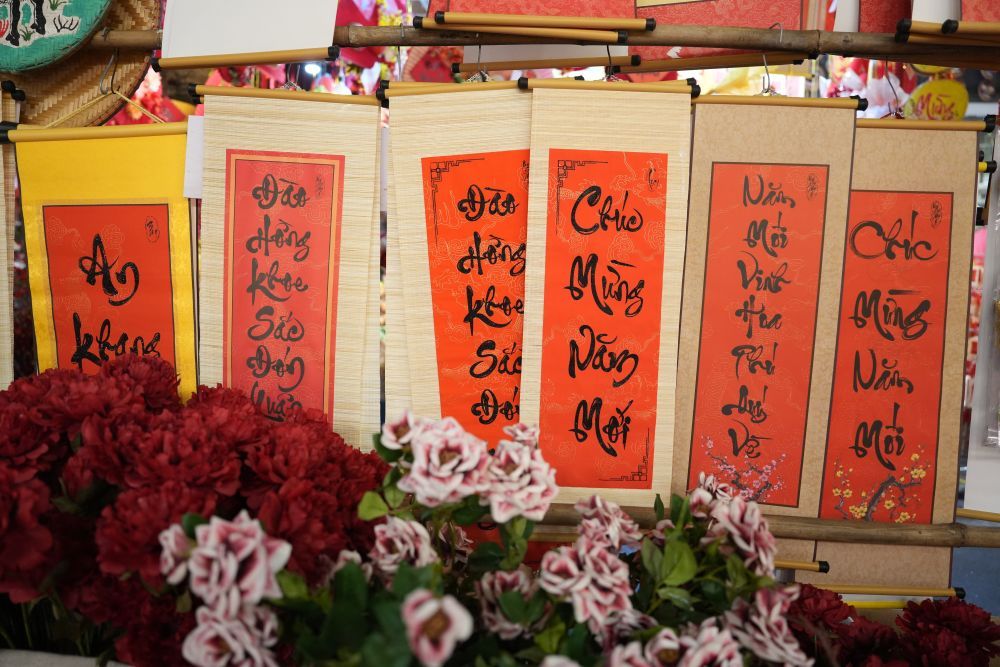 An
Khang
Đào
Hồng
Khoe
Sắc
Đón
Xuân
Đào
Hồng
Khoe
Sắc
Đón
Chúc
Mừng
Năm
Mới
Năm
Mới
Vinh
Hoa
Phú
Quý
Về
Chúc
Mừng
Năm
Mới
Mừng